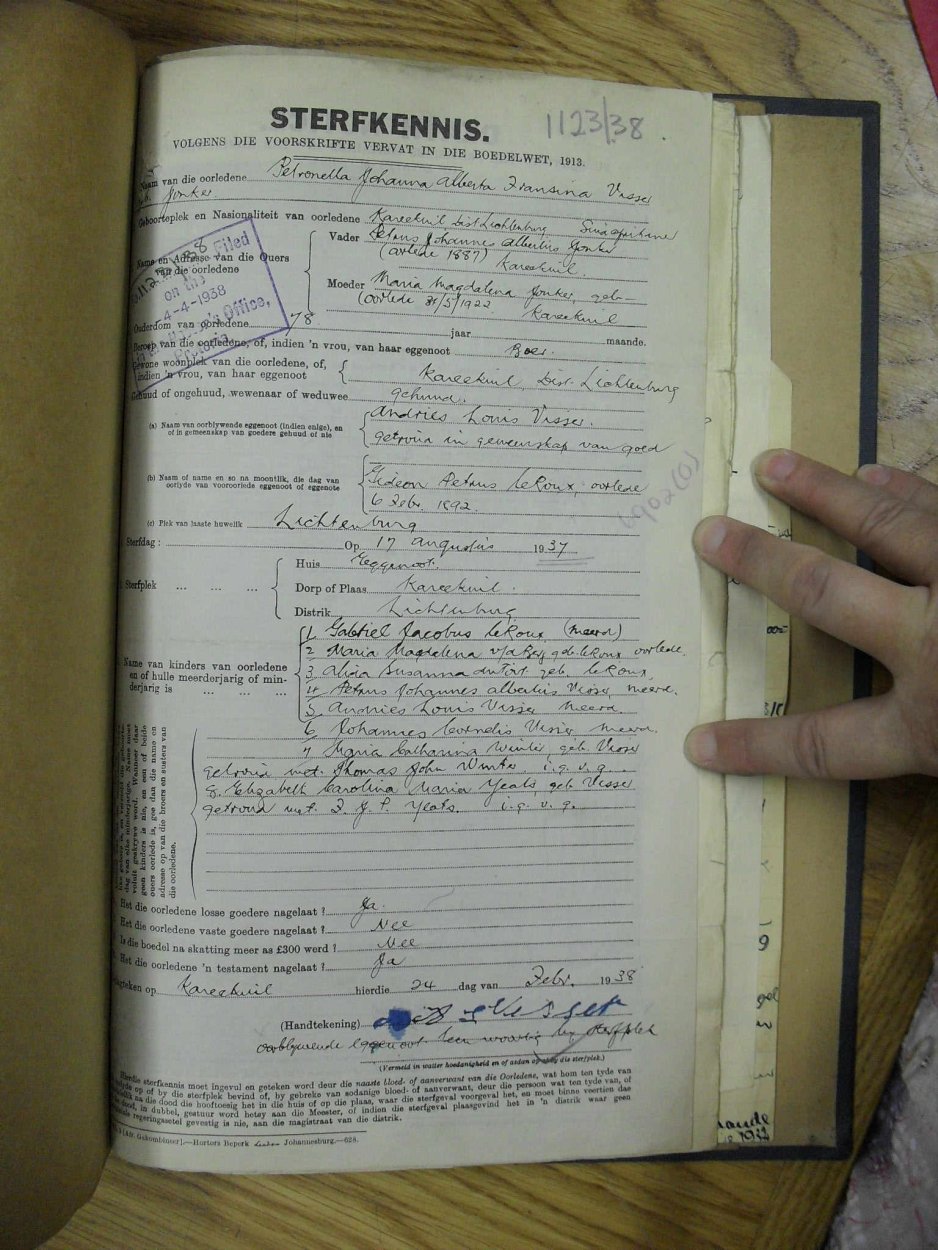 STERFKENNIS.
1123/38
VOLGENS DIE VOORSKRIFTE VERVAT IN DIE BOEDELWET, 1913.
Naam van die oorledene Petronella Johanna Alberta Fransina Visser
Jonker.
Geboorteplek en Nasionaliteit van oorledene Kareekuil Dist. Lichtenburg
Name en Adresse van die Ouers van die oorledene
Vader Petrus Johannes Albertus Jonker
(oorlede 1887) Kareekuil.
Moeder Maria Magdalena Jonker, geb—
(oorlede 31/5/1922 Kareekuil
Filed
on the
-4-4-1938
Master's Office,
Pretoria
Ouderdom van oorledene 78 jaar maande.
Beroep van die oorledene, of, indien 'n vrou, van haar eggenoot Boer.
Gewone woonplek van die oorledene, of,
indien 'n vrou, van haar eggenoot
Kareekuil Dist. Lichtenburg
Gehuud of ongehuud, wewenaar of weduwee gehuud.
(a) Naam van oorblywende eggenoot (indien enige), en
of in gemeenskap van goedere gehuud of nie
Andries Louis Visser.
getroud in gemeenskap van goed
(b) Naam of name en so na moontlik, die dag van
oorlyde van vooroorlede eggenoot of eggenote
Gideon Petrus le Roux, oorlede
6 Febr. 1892.
6902(0)
(c) Plek van laaste huwelik Lichtenburg
Sterfdag: Op 17 Augustus 1937
Sterfplek ... ... ...
Huis Eggenoot.
Dorp of Plaas Kareekuil.
Distrik Lichtenburg
Name van kinders van oorledene
en of hulle meerderjarig of min-
derjarig is ... ... ...
1 Gabriel Jacobus le Roux, (meerd)
2 Maria Magdalena v/d Rey geb. le Roux oorlede.
3 Alida Susanna du Toit geb. le Roux,
4 Petrus Johannes Albertus Visser, meerd.
5 Andries Louis Visser meerd.
6 Johannes Cornelis Visser meerd.
7 Maria Catharina Winter geb. Visser
getroud met Thomas John Winter i.g.v.g.
8. Elizabeth Carolina Maria Yeats geb. Visser
getroud met J. J. P. Yeats. i.g.v.g.
dag van elke minderjarige. Name moet
voluit geskrywe word. Wanneer daar
geen kinders is nie, en een of beide
ouers oorlede is, gee dan die name en
adresse op van die broers en susters van
die oorledene.
Het die oorledene losse goedere nagelaat? Ja.
Het die oorledene vaste goedere nagelaat? Nee
Is die boedel na skatting meer as £300 werd? Nee
Het die oorledene 'n testament nagelaat? Ja
Kareekuil hierdie 24 dag van Febr. 1938
(Handtekening) Visser
oorblywende eggenoot teenwoordig by sterfplek
(Vermeld in watter hoedanigheid en of aldan of nie by die sterfplek.)
Hierdie sterfkennis moet ingevul en geteken word deur die naaste bloed- of aanverwant van die Oorledene, wat hom ten tyde van
op of by die sterfplek bevind of, by gebreke van sodanige bloed- of aanverwant, deur die persoon wat ten tyde van, of
na die dood die hooftoesig het in die huis of op die plaas, waar die sterfgeval voorgeval het, en moet binnen veertien dae
dood, in dubbel, gestuur word hetsy aan die Meester, of indien die sterfgeval plaasgevind het in 'n distrik waar geen
regeringsetel gevestig is nie, aan die magistraat van die distrik.
[Afr. Gekombineer].—Horters Beperk Johannesburg.—628.